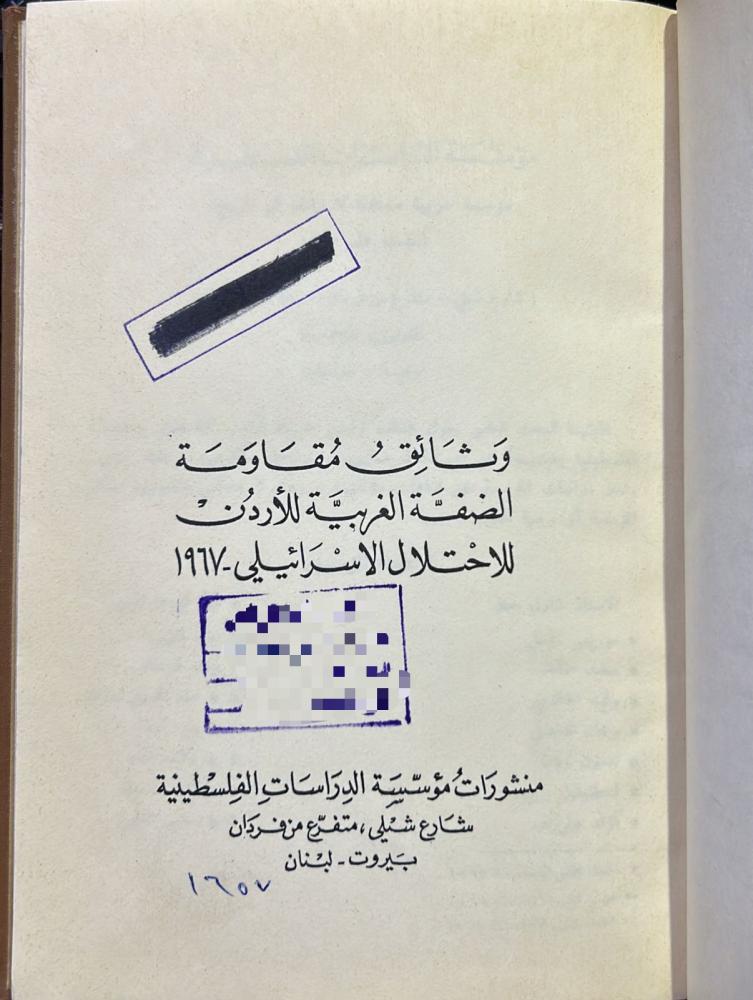 وَثَائِقُ مُقَاوَمَة
الضفَّة الغربيَّة للأردُنْ
للاحْتلال الاسْرَائيلي - ١٩٦٧
منشورَاتُ مؤسّسَة الدِرَاسَاتِ الفِلسْطينية
شارع شبلي، متفرّع من فردَان
بَيروت - لبْنان
١٦٥٧